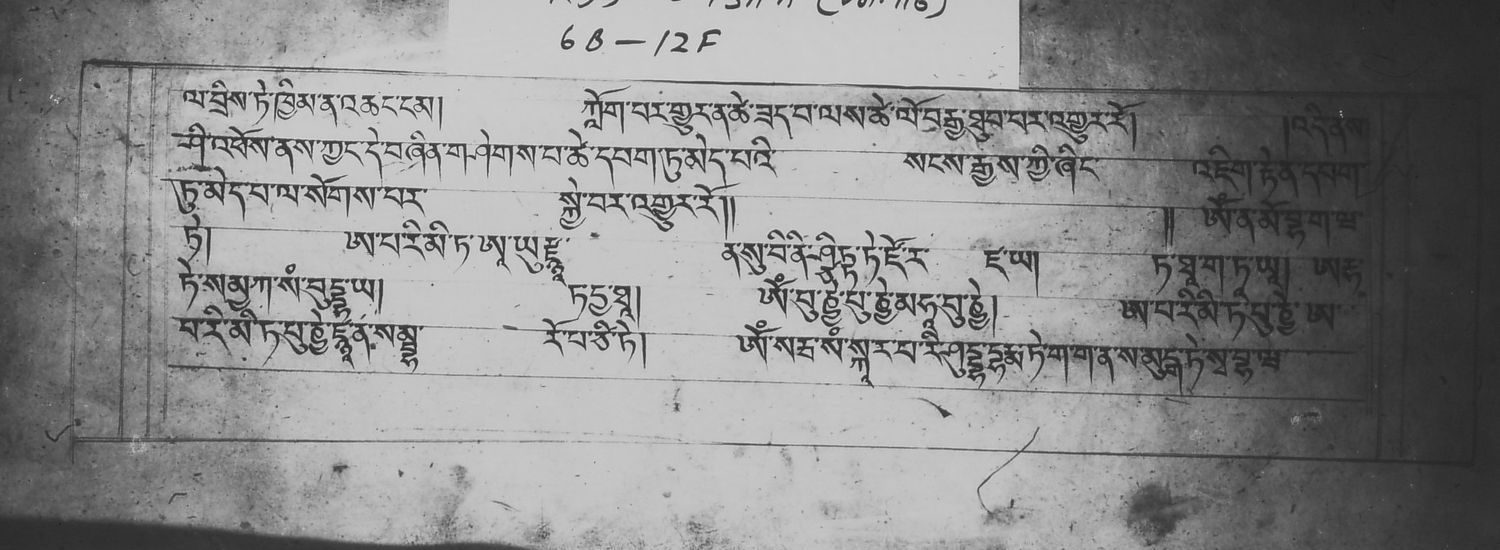 6B — 12F
ལ་བྲིས་ཏེ་ཁྱིམ་ན་འཆང་ངམ། ཀློག་པར་གྱུར་ན་ཚེ་ཟད་པ་ལས་ཚེ་ལོ་བརྒྱ་ཐུབ་པར་འགྱུར་རོ། །འདི་ནས་
ཤི་འཕོས་ནས་ཀྱང་དེ་བཞིན་གཤེགས་པ་ཚེ་དཔག་ཏུ་མེད་པའི་ སངས་རྒྱས་ཀྱི་ཞིང་ འཇིག་རྟེན་དཔག་
ཏུ་མེད་པ་ལ་སོགས་པར་ སྐྱེ་བར་འགྱུར་རོ།། །། ཨོཾ་ན་མོ་བྷ་ག་ཝ་
ཏེ། ཨ་པ་རི་མི་ཏ་ཨཱ་ཡུརྫྙཱ་ ན་སུ་བི་ནི་ཤྩི་ཏ་ཏེ་ཛོ་ར་ ཛ་ཡ། ཏ་ཐཱ་ག་ཏཱ་ཡ། ཨརྷ་
ཏེ་སམྱཀ་སཾ་བུདྡྷཱ་ཡ། ཏདྱ་ཐཱ། ཨོཾ་པུ་ཎྱེ་པུ་ཎྱེ་མ་ཧཱ་པུ་ཎྱེ། ཨ་པ་རི་མི་ཏ་པུ་ཎྱེ་ ཨ་
པ་རི་མི་ཏ་པུ་ཎྱེ་ཛྙཱ་ནཾ་སམྦྷཱ་ རོ་པ་ཙི་ཏེ། ཨོཾ་སརྦ་སཾ་སྐཱ་ར་པ་རི་ཤུདྡྷ་དྷརྨ་ཏེ་ག་ག་ན་ས་མུདྒ་ཏེ་སྭ་བྷཱ་ཝ་